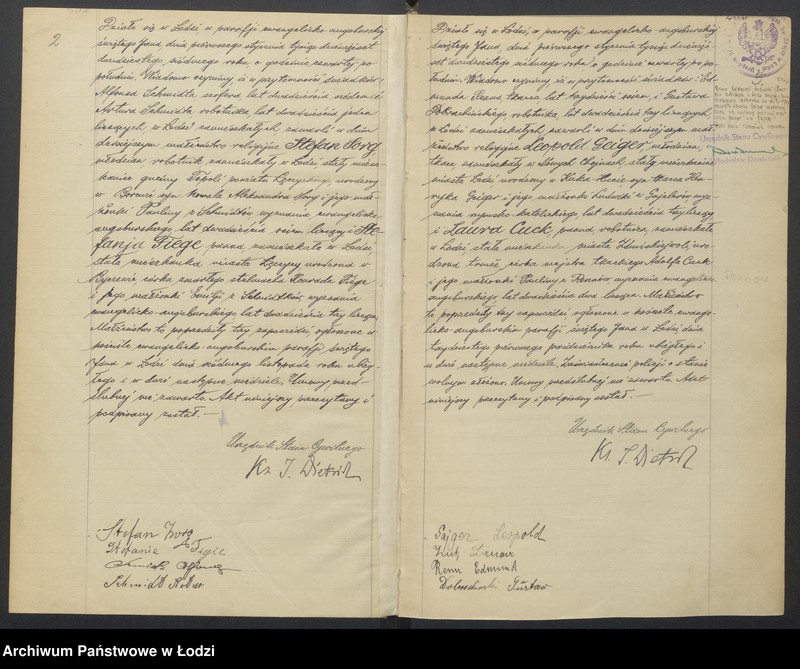 2
Działo się w Łodzi w parafji ewangelicko-augsburskiej
świętego Jana, dnia pierwszego stycznia tysiąc dziewięćset
dwudziestego siódmego roku, o godzinie czwartej po
południu. Wiadomo czynimy iż w przytomności świadków:
Alfonsa Schmidta szofera, lat dwadzieścia siedem i
Artura Schmidta robotnika, lat dwadzieścia jeden
liczących, w Łodzi zamieszkałych, zawarli w dniu
dzisiejszym małżeństwo religijne Stefan Jorg
młodzian robotnik zamieszkały w Łodzi, stały miesz-
kaniec gminy Topoli powiatu Łęczyckiego, urodzony
w syn kowala Aleksandra Jorg i jego mał-
żonki Pauliny z Schmidtów, wyznania ewangelicko-
augsburskiego lat dwadzieścia osiem liczący i Ste-
fanja Fiege, panna, zamieszkała w Łodzi,
stała mieszkanka miasta Łęczycy urodzona w
córka zmarłego stelmacha Konrada Fiege
i jego małżonki Emilji z Schmidtków wyznania
ewangelicko-augsburskiego lat dwadzieścia trzy licząca.
Małżeństwo to poprzedziły trzy zapowiedzi, ogłoszone w
kościele ewangelicko-augsburskim parafji świętego
Jana w Łodzi dnia siódmego listopada roku ubieg-
łego i w dwie następne niedziele. Umowy przed-
ślubnej nie zawarto. Akt niniejszy przeczytany i
podpisany został.—
Urzędnik Stanu Cywilnego
Ks. J. Dietrich
Stefan Jorg
Stefanie Figie
Schmidt Alfons
Schmidt
Działo się w Łodzi, w parafji ewangelicko-augsburskiej
świętego Jana, dnia pierwszego stycznia tysiąc dziewięć-
set dwudziestego siódmego roku o godzinie czwartej po po-
łudniu. Wiadomo czynimy iż w przytomności świadków: Ed-
munda Renna tkacza lat trzydzieści osiem, i Gustawa
Dobrosławskiego robotnika, lat dwadzieścia trzy liczących,
w Łodzi zamieszkałych, zawarli w dniu dzisiejszym mał-
żeństwo religijne Leopold Geiger, młodzian,
tkacz, zamieszkały w Nowych Chojnach, stały mieszkaniec
miasta Łodzi urodzony w Hucie syn tkacza Hen-
ryka Geiger i jego małżonki Ludwiki z wyz-
nania rzymsko-katolickiego lat dwadzieścia trzy liczący
i Laura Cuck, panna robotnica, zamieszkała
w Łodzi, stała mieszkanka miasta Zduńskiejwoli, uro-
dzona tamże, córka majstra tkackiego Adolfa Cuck
i jego małżonki Pauliny z Rennów wyznania ewangelicko-
augsburskiego lat dwadzieścia dwa licząca. Małżeństwo
to poprzedziły trzy zapowiedzi, ogłoszone w kościele ewange-
licko-augsburskim parafji świętego Jana w Łodzi dnia
trzydziestego pierwszego października roku ubiegłego i
w dwie następne niedziele. Zaświadczenia policji o stanie
wolnym złożone. Umowy przedślubnej nie zawarto. Akt
niniejszy przeczytany i podpisany został.—
Urzędnik Stanu Cywilnego
Ks. J. Dietrich
Gajger Leopold
Renn Edmund
Gustaw
Urzędnik Stanu Cywilnego
Archiwum Państwowe w Łodzi